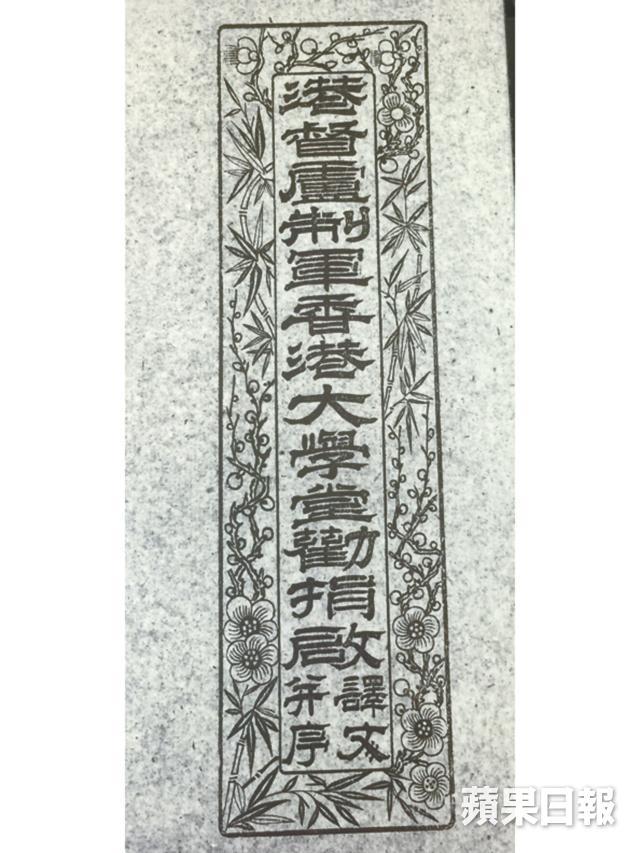 港督盧制軍香港大學堂勸捐啟
譯文
并序
蘋果日報